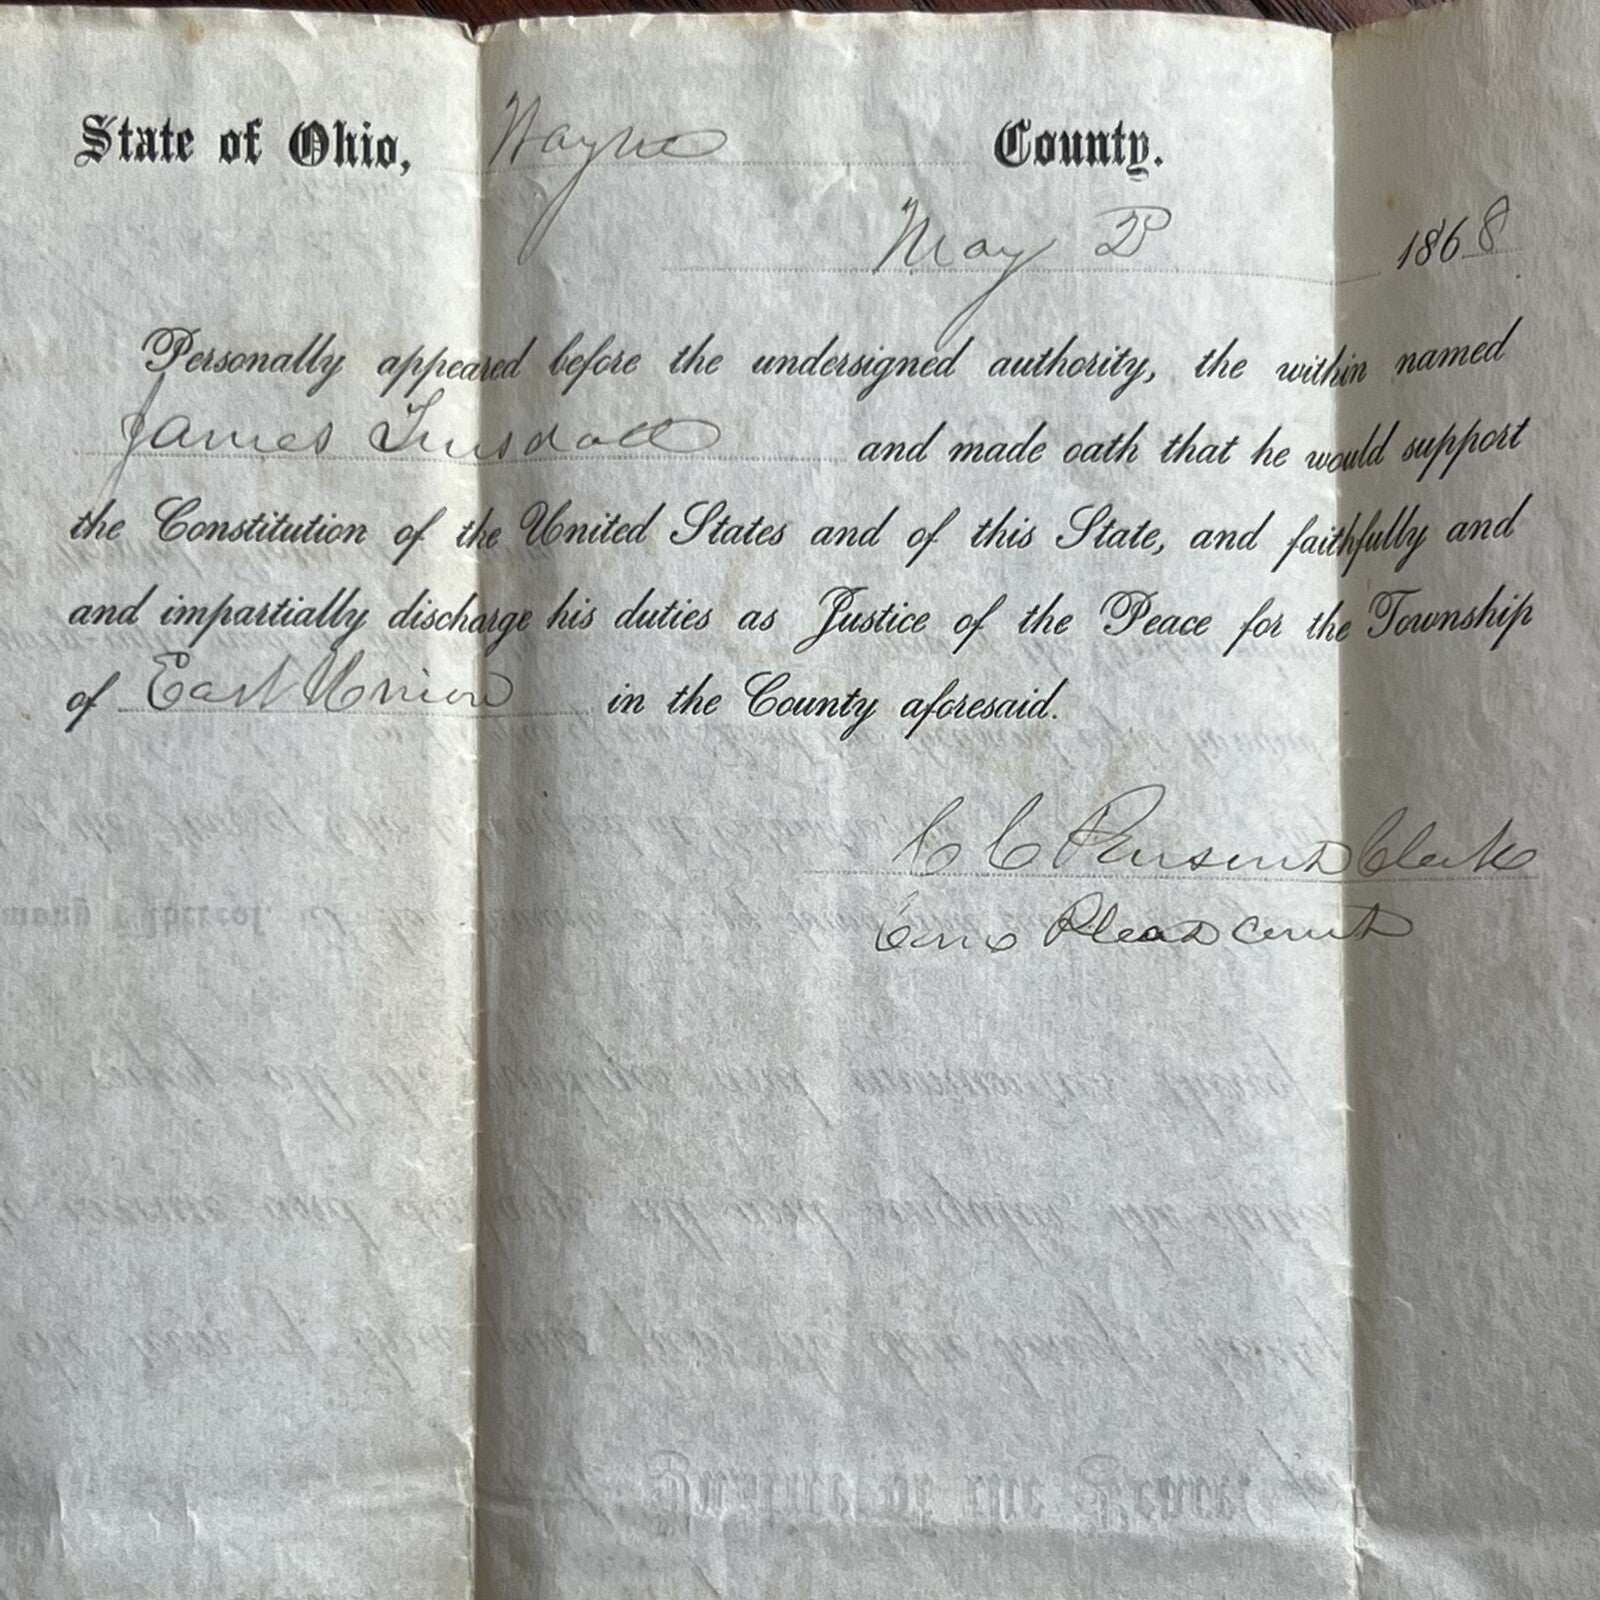 State of Ohio, Wayne County.
May 2 1868
Personally appeared before the undersigned authority, the within named
James and made oath that he would support
the Constitution of the United States and of this State, and faithfully and
and impartially discharge his duties as Justice of the Peace for the Township
of East Union in the County aforesaid.
C C Clerk
Com Pleas Court